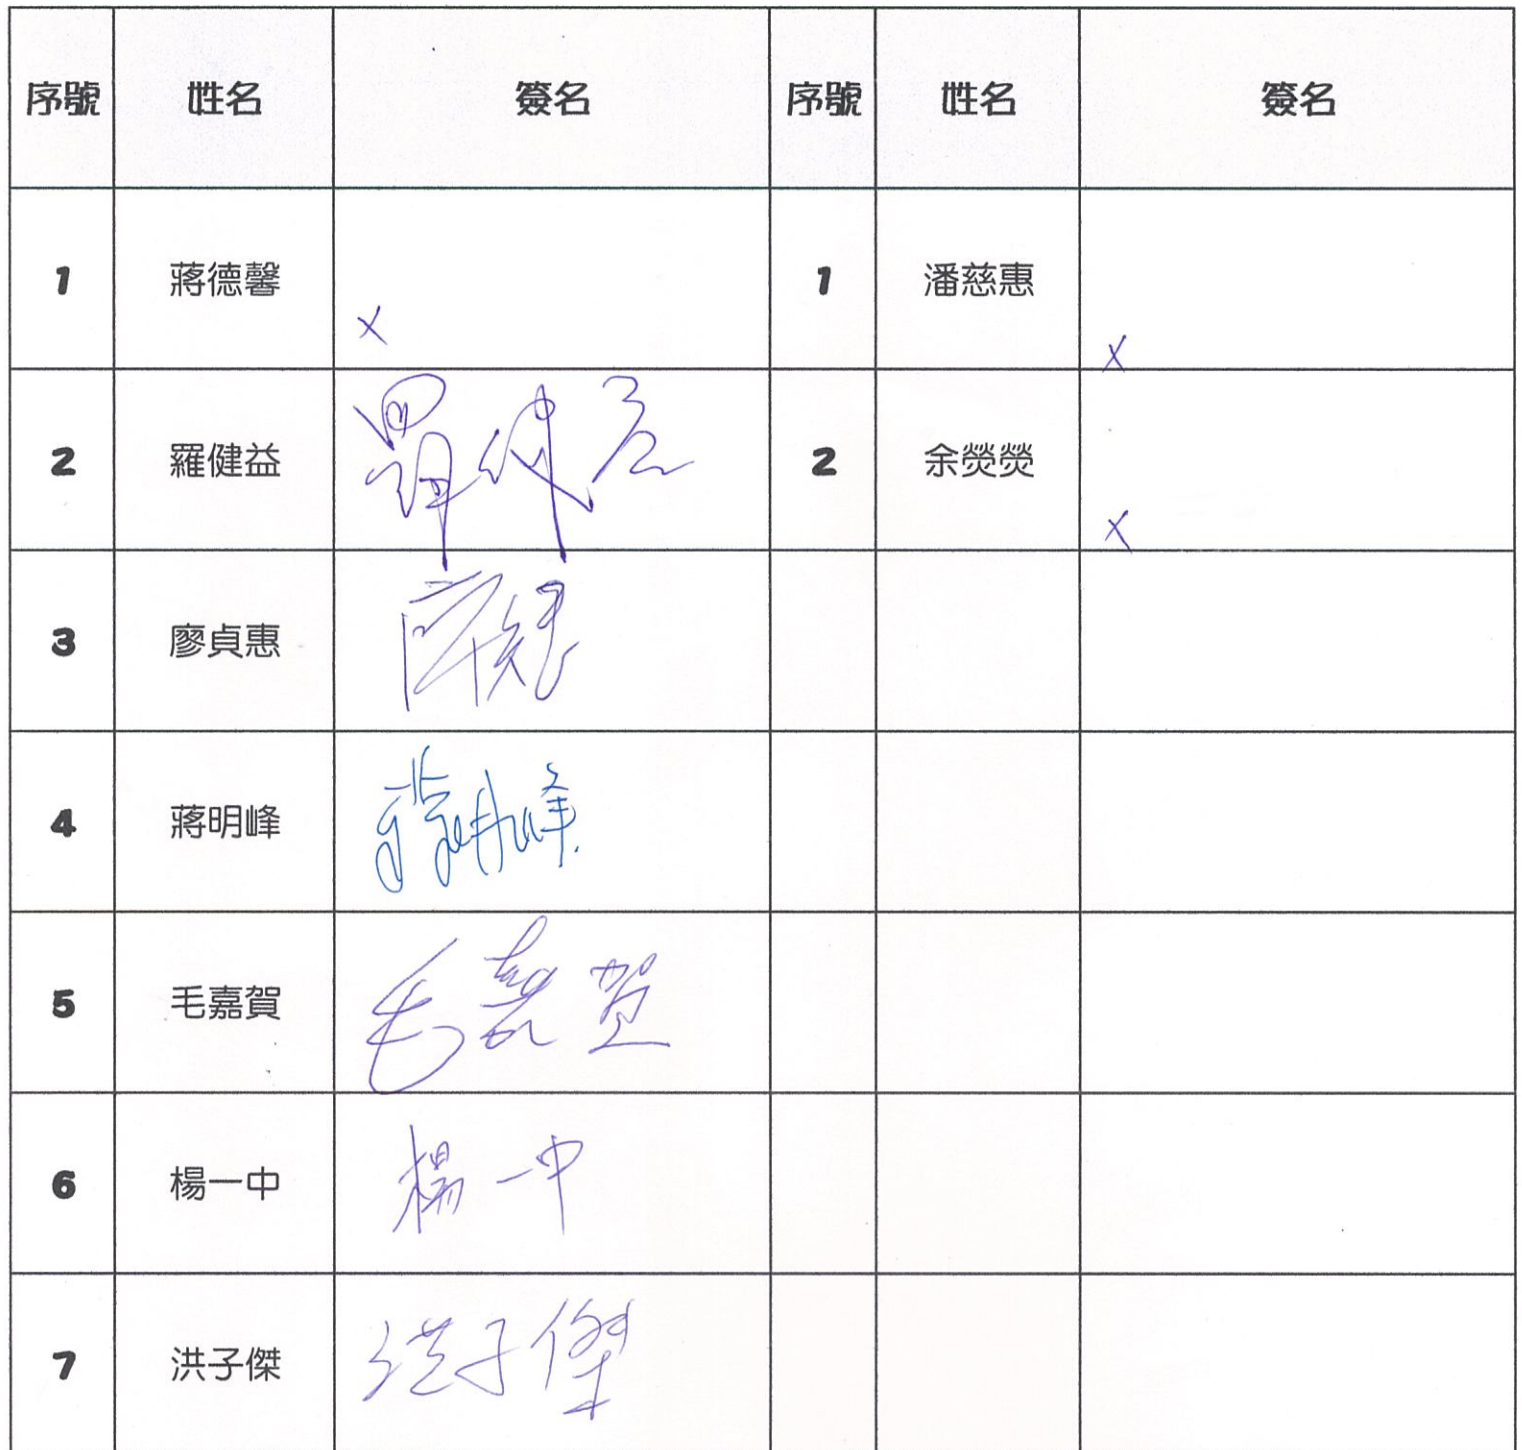 序號 姓名 簽名 序號 姓名 簽名
1 蔣德馨 x 1 潘慈惠 x
2 羅健益 羅健益 2 余熒熒 x
3 廖貞惠
4 蔣明峰 蔣明峰
5 毛嘉賀 毛嘉賀
6 楊一中 楊一中
7 洪子傑 洪子傑